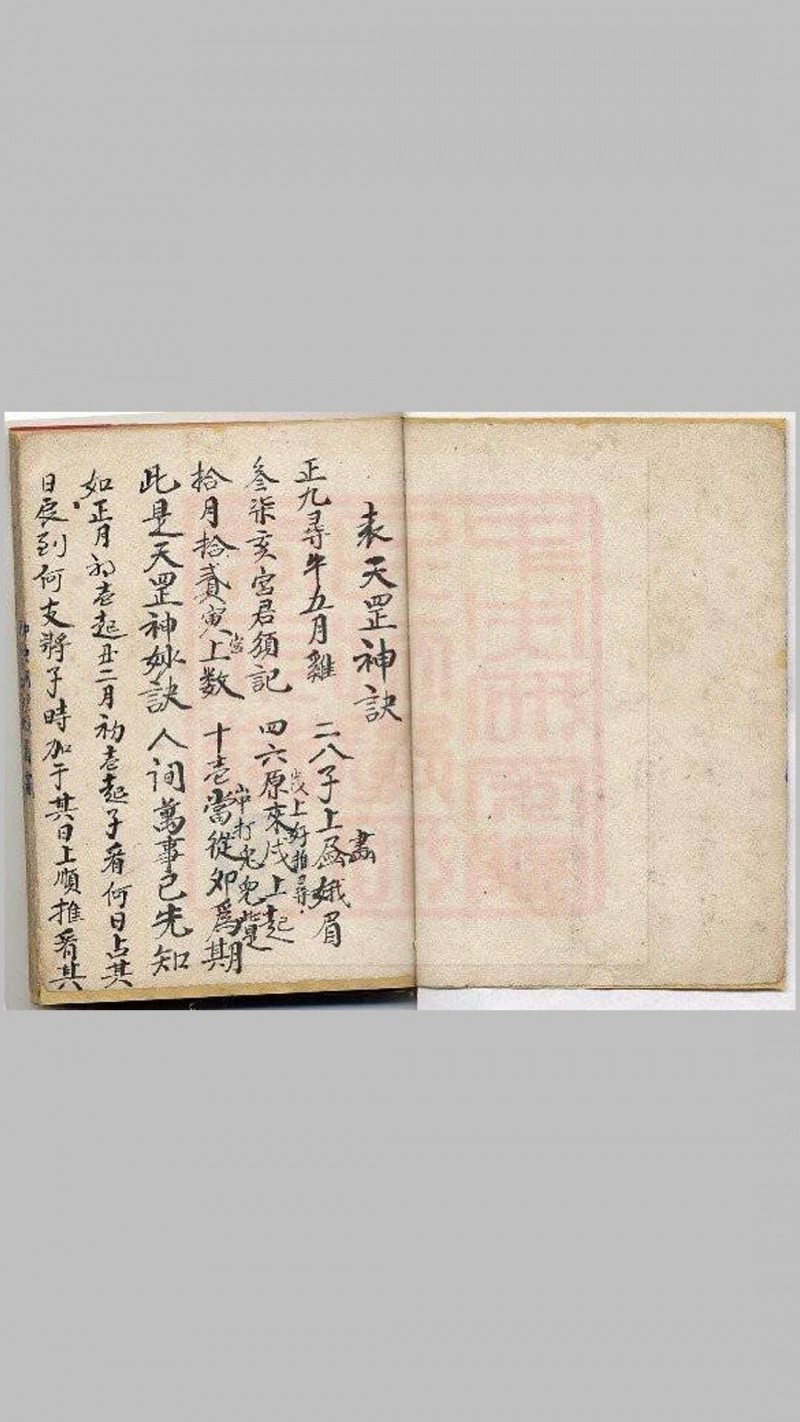 袁天罡神訣
正九尋牛五月雞 二八子上画娥眉
畵
叁柒亥宮君須記 四六原來戌上起
戌上好推尋
拾月拾貳寅上數 十壱當從卯為期
當
此是天罡神妙訣 人間萬事已先知
如正月初壱起丑二月初壱起子看何日占其
日辰到何支將子時加于其日上順推看其